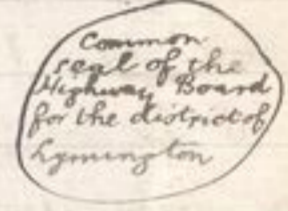 Common
seal of the
Highway Board
for the district of
Lymington